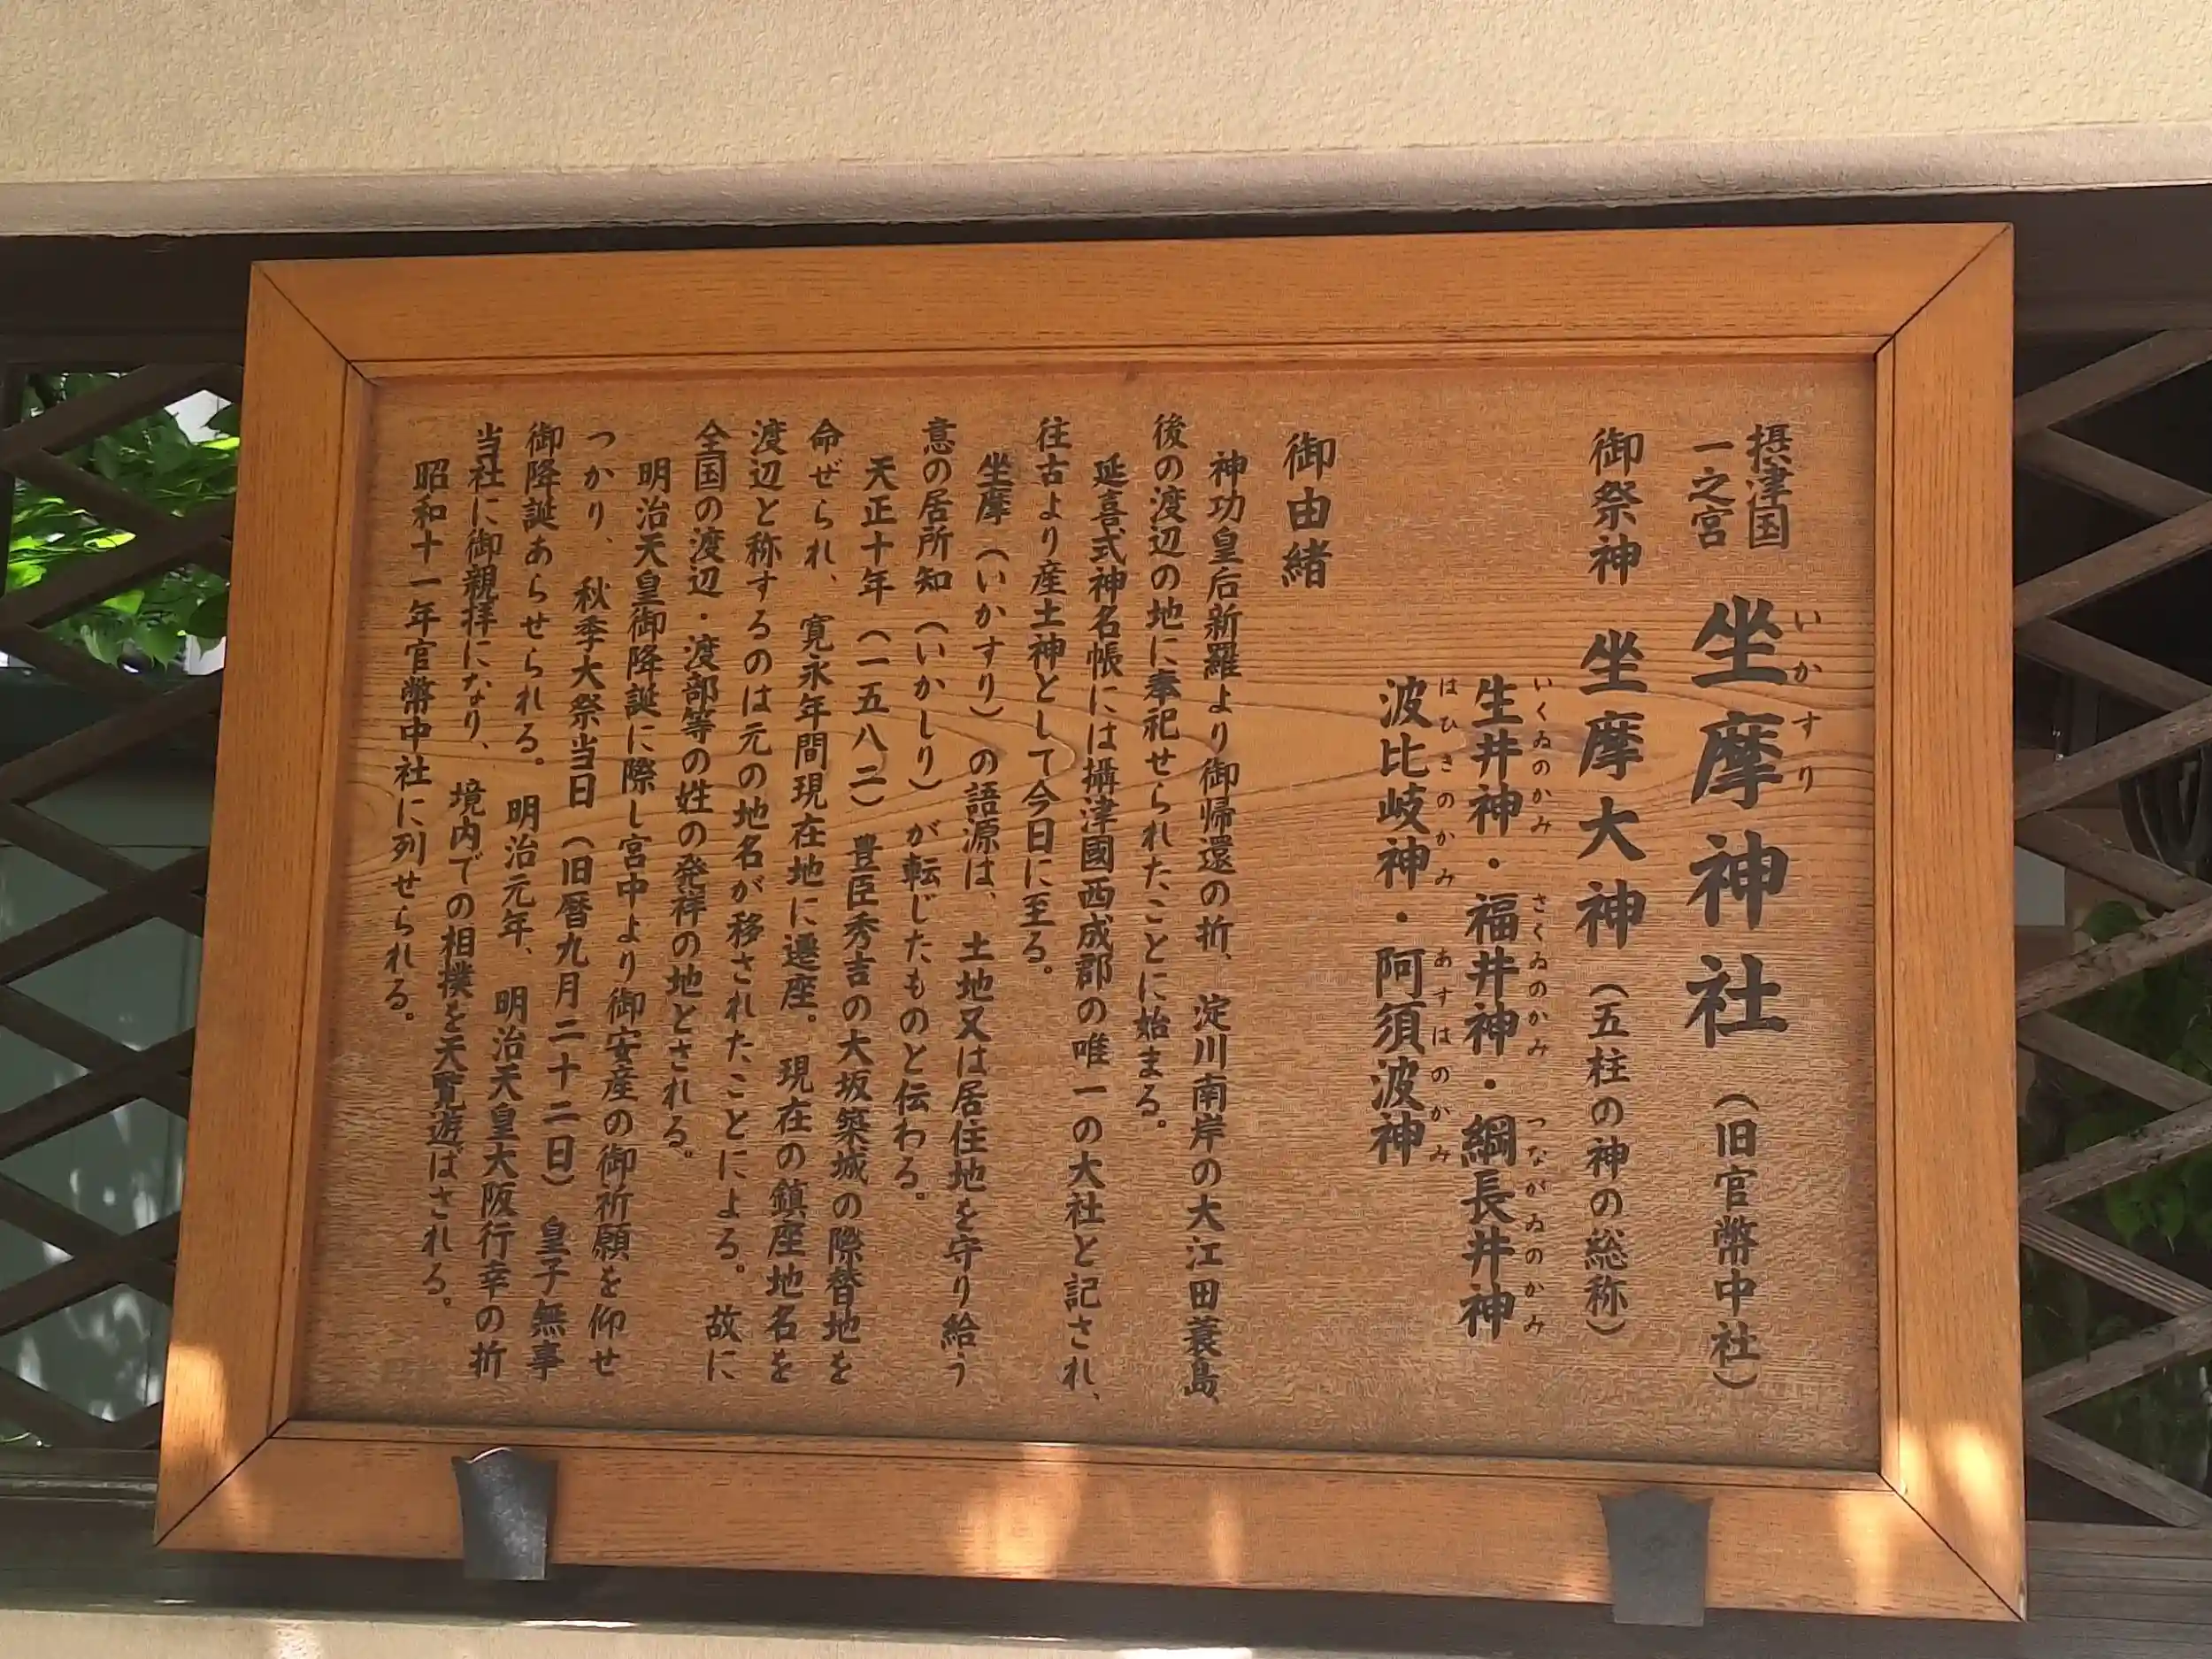 摂津国
一之宮
坐摩神社（旧官幣中社）
いかすり
御祭神　坐摩大神（五柱の神の総称）
生井神・福井神・綱長井神
いくゐのかみ　さくゐのかみ　つながゐのかみ
波比岐神・阿須波神
はひきのかみ　あすはのかみ
御由緒
神功皇后新羅より御帰還の折、淀川南岸の大江田蓑島、
後の渡辺の地に奉祀せられたことに始まる。
延喜式神名帳には攝津國西成郡の唯一の大社と記され、
往古より産土神として今日に至る。
坐摩（いかすり）の語源は、土地又は居住地を守り給う
意の居所知（いかしり）が転じたものと伝わる。
天正十年（一五八二）豊臣秀吉の大坂築城の際替地を
命ぜられ、寛永年間現在地に遷座。現在の鎮座地名を
渡辺と称するのは元の地名が移されたことによる。故に
全国の渡辺・渡部等の姓の発祥の地とされる。
明治天皇御降誕に際し宮中より御安産の御祈願を仰せ
つかり、秋季大祭当日（旧暦九月二十二日）皇子無事
御降誕あらせられる。明治元年、明治天皇大阪行幸の折
当社に御親拝になり、境内での相撲を天覧遊ばされる。
昭和十一年官幣中社に列せられる。